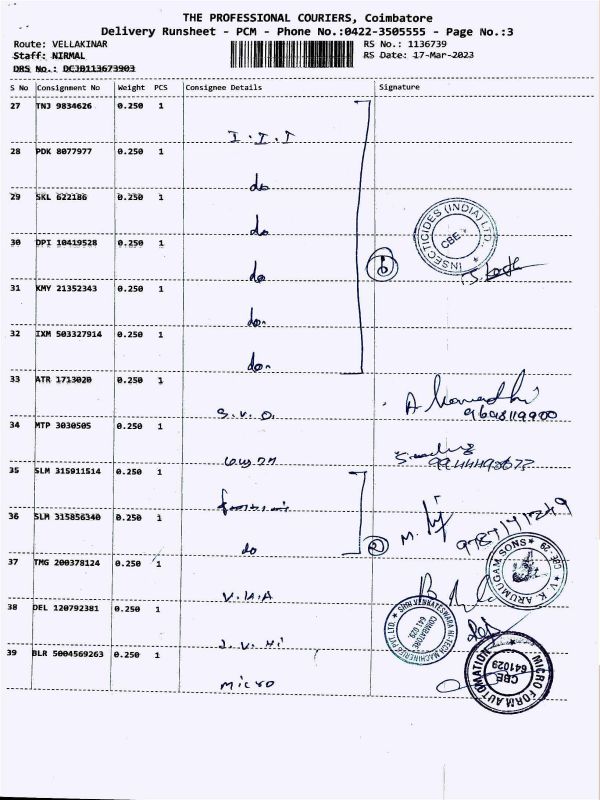 THE PROFESSIONAL COURIERS, Coimbatore
Delivery Runsheet - PCM - Phone No.:0422-3505555 - Page No.:3
Route: VELLAKINAR
RS No.: 1136739
Staff: NIRMAL
RS Date: 17-Mar-2023
DRS No.: DCJB113673903
S No Consignment No Weight PCS Consignee Details Signature
27 TNJ 9834626 0.250 1
I.I.I
28 PDK 8077977 0.250 1
do
29 SKL 622186 0.250 1
do
INSECTICIDES (INDIA) LTD.
CBE
30 DPI 10419528 0.250 1
do
6
31 KMY 21352343 0.250 1
do
32 IXM 503327914 0.250 1
do
33 ATR 1713020 0.250 1
S.V.O.
9698119900
34 MTP 3030505 0.250 1
35 SLM 315911514 0.250 1
36 SLM 315856340 0.250 1
do
2
M.
9787171249
V.K. ARUMUGAM SONS
CBE-29
37 TMG 200378124 0.250 1
V.H.A
SHRI VENKATESWARA HI-TECH MACHINERIES PVT. LTD.
COIMBATORE
641 029.
38 DEL 120792381 0.250 1
J.V.Hi
39 BLR 5004569263 0.250 1
MICRO
MICRO FORM AUTOMATION
CBE
641029